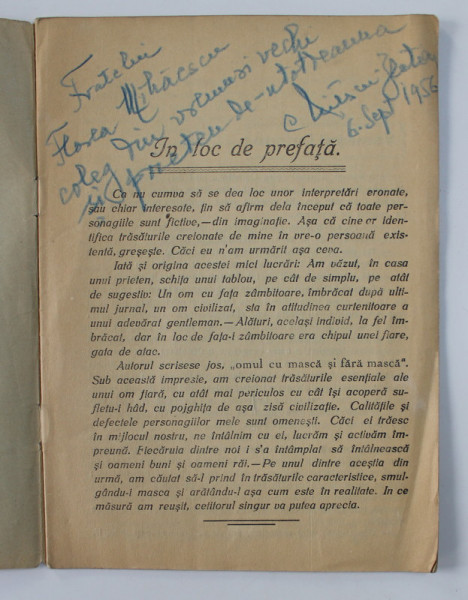 Fratelui
Florea Mihăescu
coleg din vremuri vechi
și prieten de-totdeauna
6. Sept 1956
In loc de prefață.
Ca nu cumva să se dea loc unor interpretări eronate,
sau chiar interesate, țin să afirm dela început că toate per-
sonagiile sunt fictive,—din imaginație. Așa că cine ar iden-
tifica trăsăturile creionate de mine în vre-o persoană exis-
tentă, greșește. Căci eu n'am urmărit așa ceva.
Iată și origina acestei mici lucrări: Am văzut, în casa
unui prieten, schița unui tablou, pe cât de simplu, pe atât
de sugestiv: Un om cu fața zâmbitoare, îmbrăcat după ulti-
mul jurnal, un om civilizat, sta în atitudinea curtenitoare a
unui adevărat gentleman.— Alături, același individ, la fel îm-
brăcat, dar în loc de fața-i zâmbitoare era chipul unei fiare,
gata de atac.
Autorul scrisese jos, „omul cu mască și fără mască“.
Sub această impresie, am creionat trăsăturile esențiale ale
unui om fiară, cu atât mai periculos cu cât își acoperă su-
fletu-i hâd, cu pojghița de așa zisă civilizație. Calitățile și
defectele personagiilor mele sunt omenești. Căci ei trăesc
în mijlocul nostru, ne întâlnim cu ei, lucrăm și activăm îm-
preună. Fiecăruia dintre noi i s'a întâmplat să întâlnească
și oameni buni și oameni răi.—Pe unul dintre aceștia din
urmă, am căutat să-l prind în trăsăturile caracteristice, smul-
gându-i masca și arătându-l așa cum este în realitate. In ce
măsură am reușit, cetitorul singur va putea aprecia.